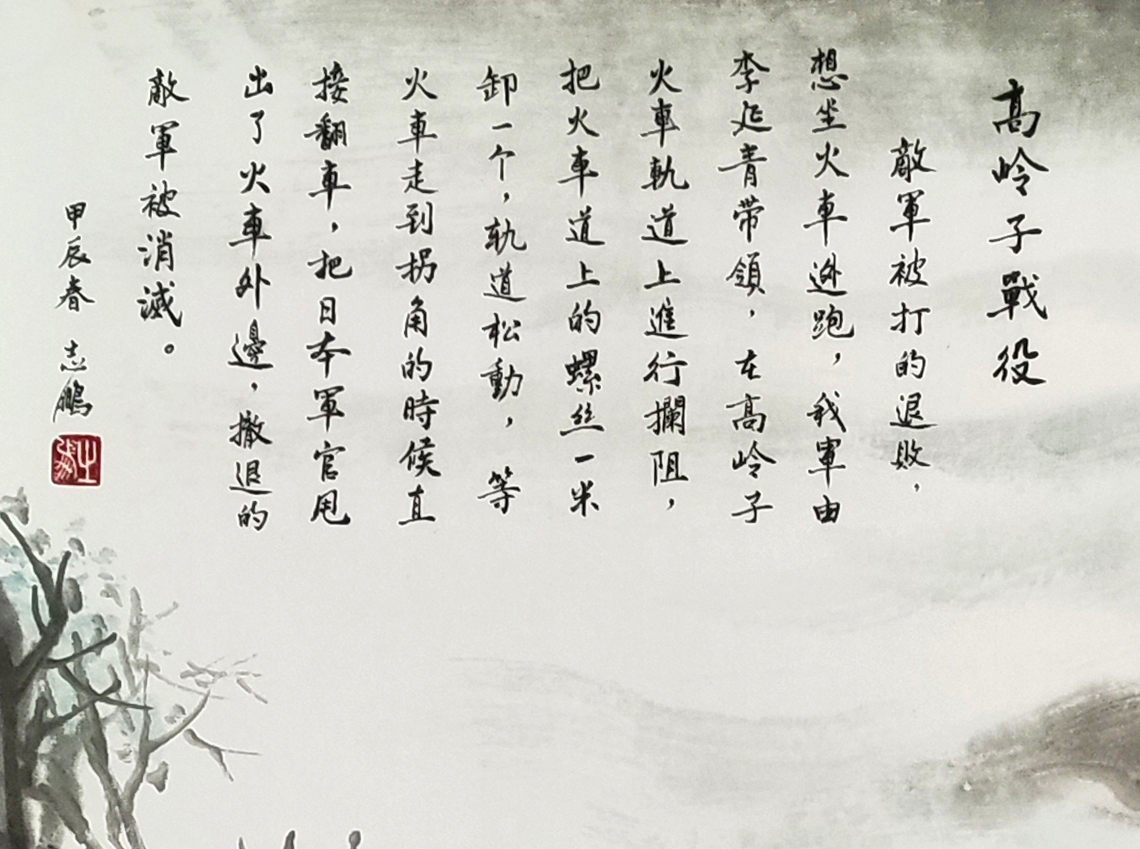 高岭子戰役
敵軍被打的退敗，
想坐火車逃跑，我軍由
李延青带領，在高岭子
火車軌道上進行攔阻，
把火車道上的螺丝一米
卸一个，轨道松動，等
火車走到拐角的時候直
接翻車，把日本軍官甩
出了火車外邊，撤退的
敵軍被消滅。
甲辰春 志鵬